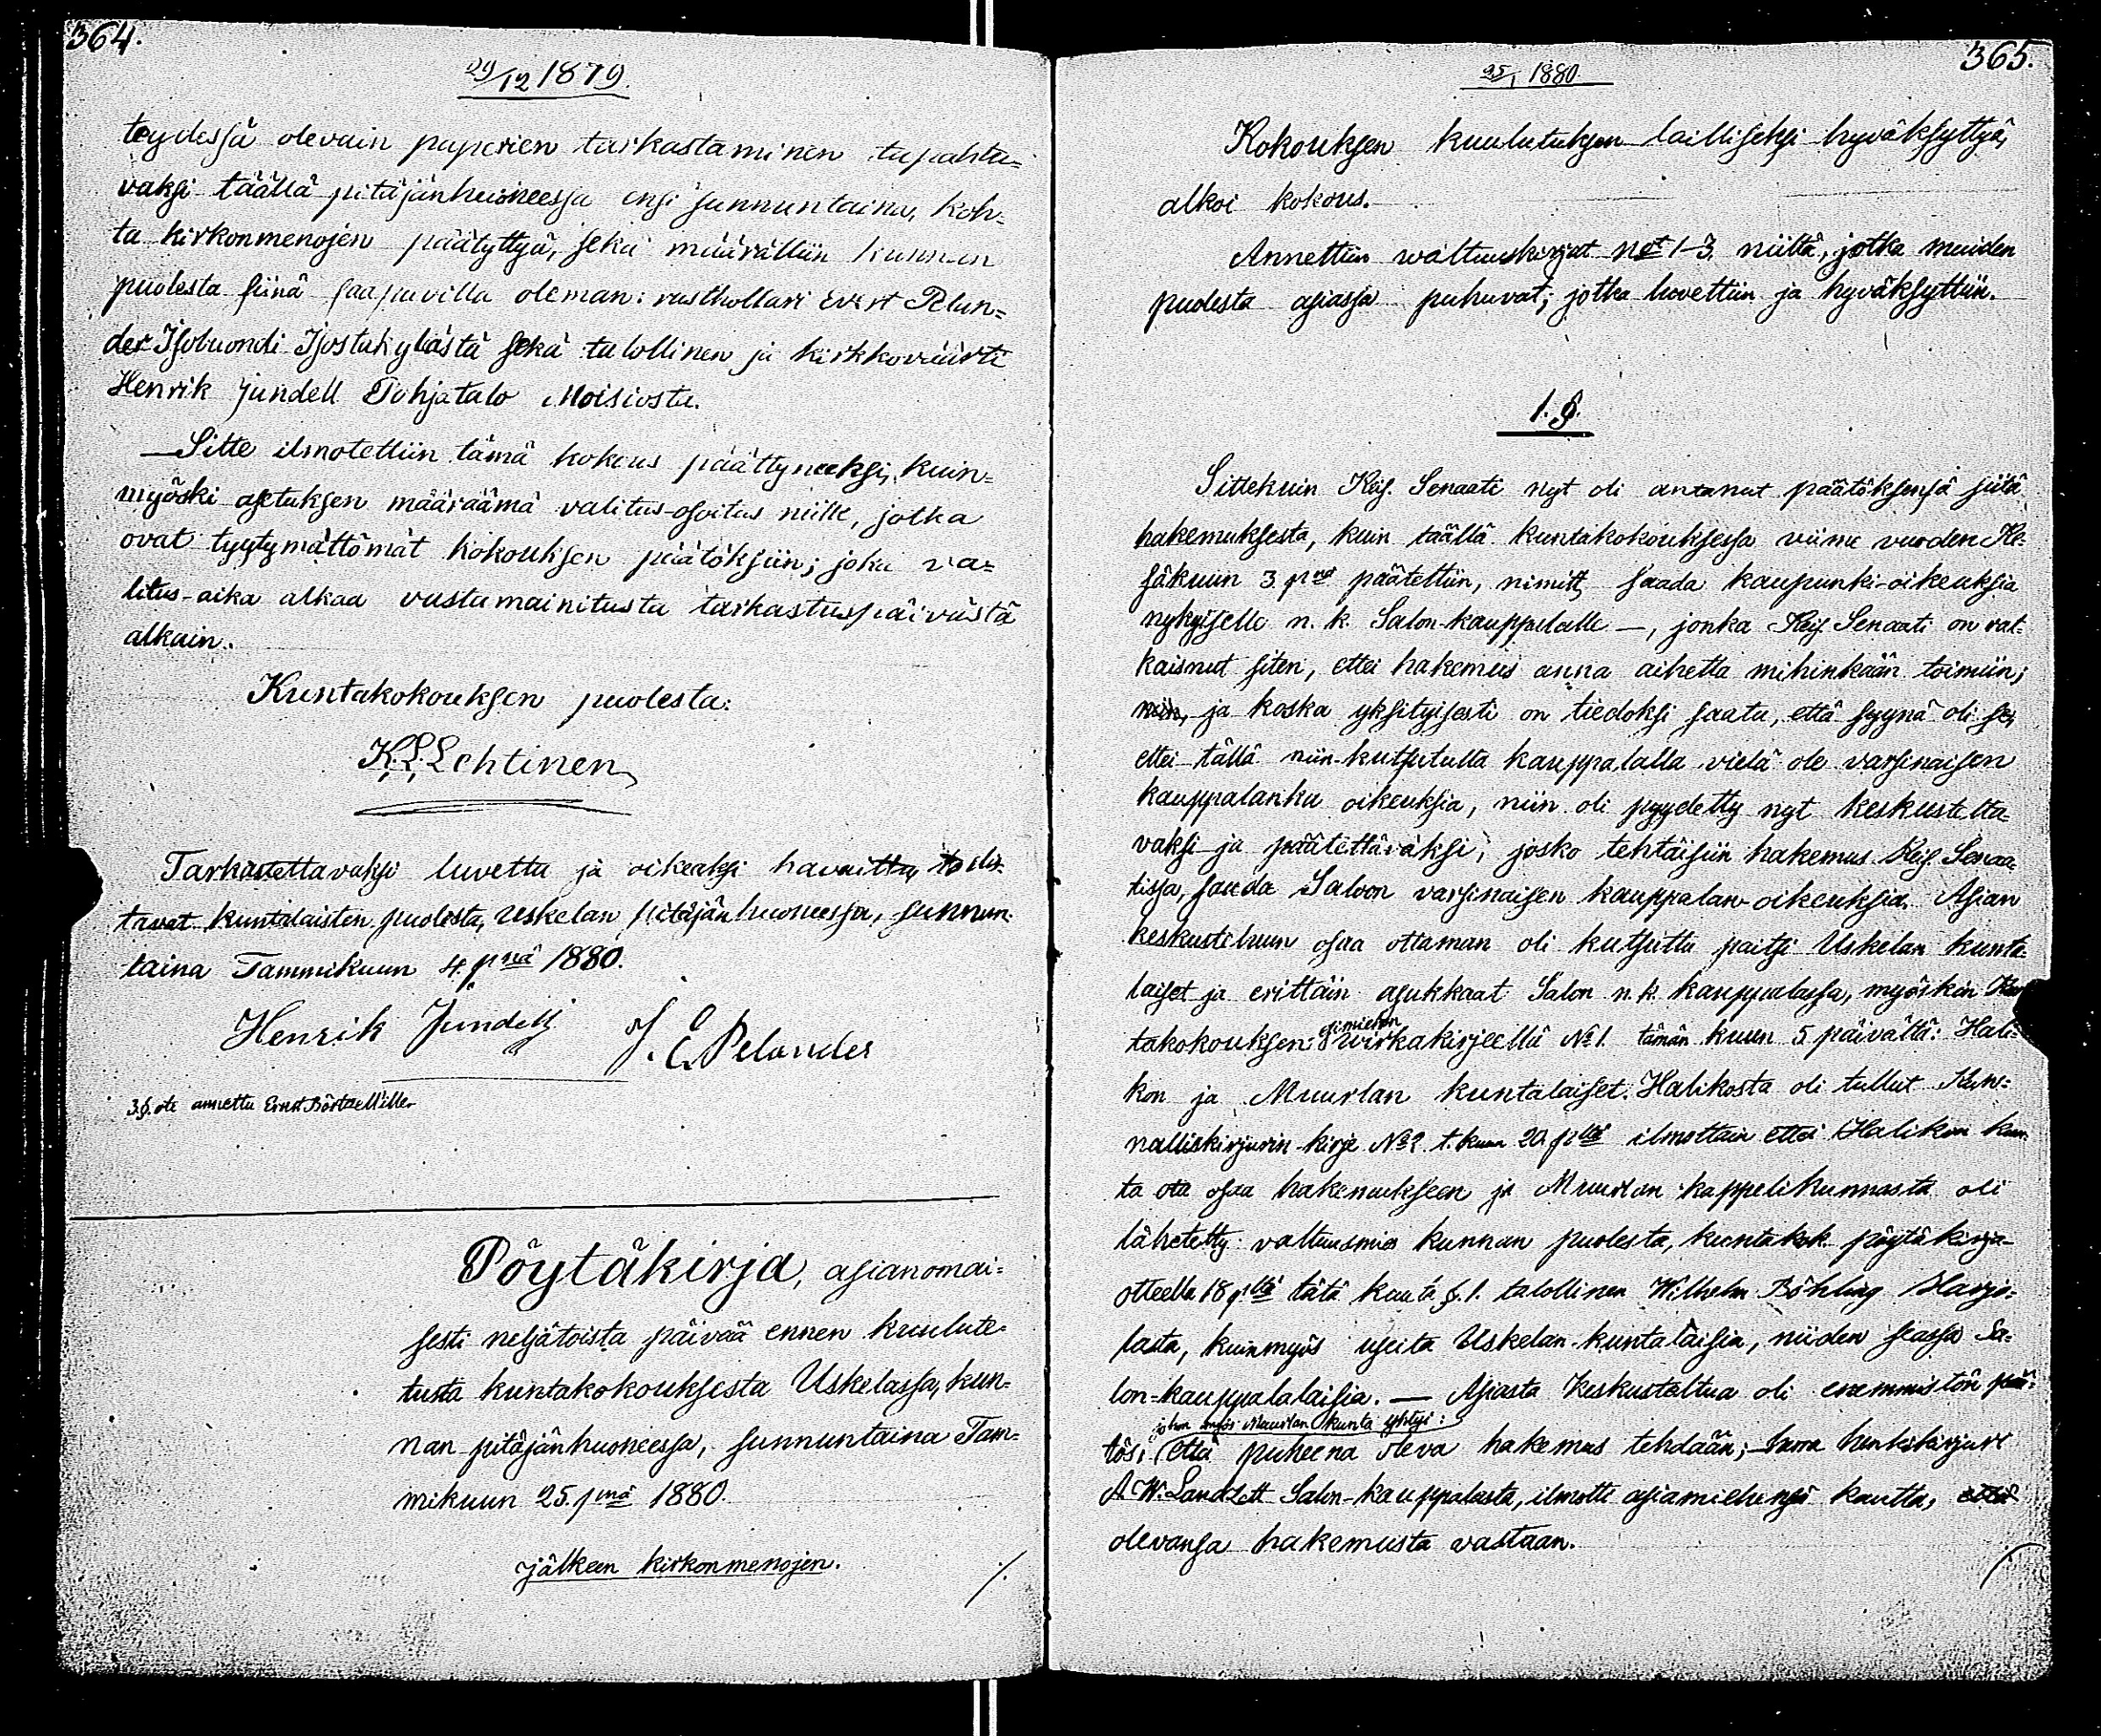 364.
29/12 1879.
teydessä olevain paperien tarkastaminen tapahtu=
vaksi täällä pitäjänhuoneessa ensi sunnuntaina, koh=
ta kirkonmenojen päätyttyä, sekä määrättiin kunnan
puolesta siinä saapuvilla oleman: rusthollari Evert Pelan=
der Isobuondi Isostakylästä sekä talollinen ja kirkkoväärti
Henrik Jundell Pohjatalo Moisiosta.
—Sitte ilmotettiin tämä kokous päättyneeksi, kuin=
myöski asetuksen määräämä valitus-osoitus niille, jotka
ovat tyytymättömät kokouksen päätöksiin; joka va=
litus-aika alkaa vastamainitusta tarkastuspäivästä
alkain.
Kuntakokouksen puolesta:
K. L. Lehtinen
Tarkastettavaksi luvettu ja oikeaksi havaittu, todis=
tavat kuntalaisten puolesta, Uskelan pitäjänhuoneessa, sunnun=
taina Tammikuun 4. pnä 1880.
Henrik Jundell J. E. Pelander
3.§. ote annettu Ernst
Pöytäkirja, asianomai=
sesti neljätoista päivää ennen kuulute=
tusta kuntakokouksesta Uskelassa, kun=
nan pitäjänhuoneessa, sunnuntaina Tam=
mikuun 25. pnä 1880.
jälkeen kirkonmenojen. ./.
365.
25/1 1880
Kokouksen kuulutuksen lailliseksi hyväksyttyä,
alkoi kokous.
Annettiin waltuuskirjat not 1-3. niiltä, jotka muiden
puolesta asiassa puhuvat; jotka luvettiin ja hyväksyttiin.
1. §.
Sittekuin Keis. Senaati nyt oli antanut päätöksensä siitä
hakemuksesta, kuin täällä kuntakokouksessa viime vuoden Ke=
säkuun 3 pnä päätettiin, nimitt. saada kaupunki-oikeuksia
nykyiselle n. k. Salon-kauppalalle —, jonka Keis. Senaati on rat=
kaisnut siten, ettei hakemus anna aihetta mihinkään toimiin;
niin, ja koska yksityisesti on tiedoksi saatu, että syynä oli se,
ettei tällä niin-kutsutulla kauppalalla vielä ole varsinaisen
kauppalanka oikeuksia, niin oli pyydetty nyt keskustelta=
vaksi ja päätettäväksi, josko tehtäisiin hakemus Keis. Senaa=
tissa, saada Saloon varsinaisen kauppalan-oikeuksia. Asian
keskusteluun osaa ottaman oli kutsuttu paitsi Uskelan kunta=
laiset ja erittäin asukkaat Salon n. k. kauppalassa, myöskin Kun
takokouksen esimiehen wirkakirjeellä No 1. tämän kuun 5 päivältä: Hali=
kon ja Muurlan kuntalaiset. Halikosta oli tullut Kun=
nalliskirjurin kirje No 2 t. kuun 20 pltä ilmottain ettei Halikon kun=
ta ota osaa hakemukseen ja Muurlan kappelikunnasta oli
lähetetty valtuusmies kunnan puolesta, kuntakok. pöytäkirja-
otteella 18 pltä tätä kuuta §. 1. talollinen Wilhelm Böhling Harjo=
lasta, kuinmyös useita Uskelan-kuntalaisia, niiden seassa Sa=
lon-kauppalalaisia. — Asiasta keskusteltua oli enemmistön pää=
johon myös Muurlan kunta yhtyi:
tös: että puheena oleva hakemus tehdään; herra henkikirjuri
A. W. Landzett Salon-kauppalasta, ilmotti asiamiehensä kautta,
olevansa hakemusta vastaan.